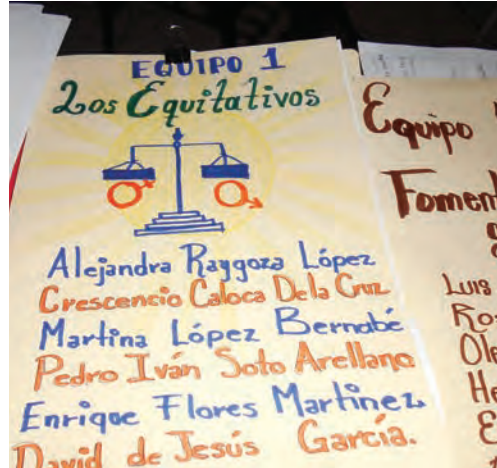 EQUIPO 1
Los Equitativos
Alejandra Raygoza López
Crescencio Caloca De la Cruz
Martina López Bernabé
Pedro Iván Soto Arellano
Enrique Flores Martinez.
David de Jesús García.
Equipo
Fomen
Luis